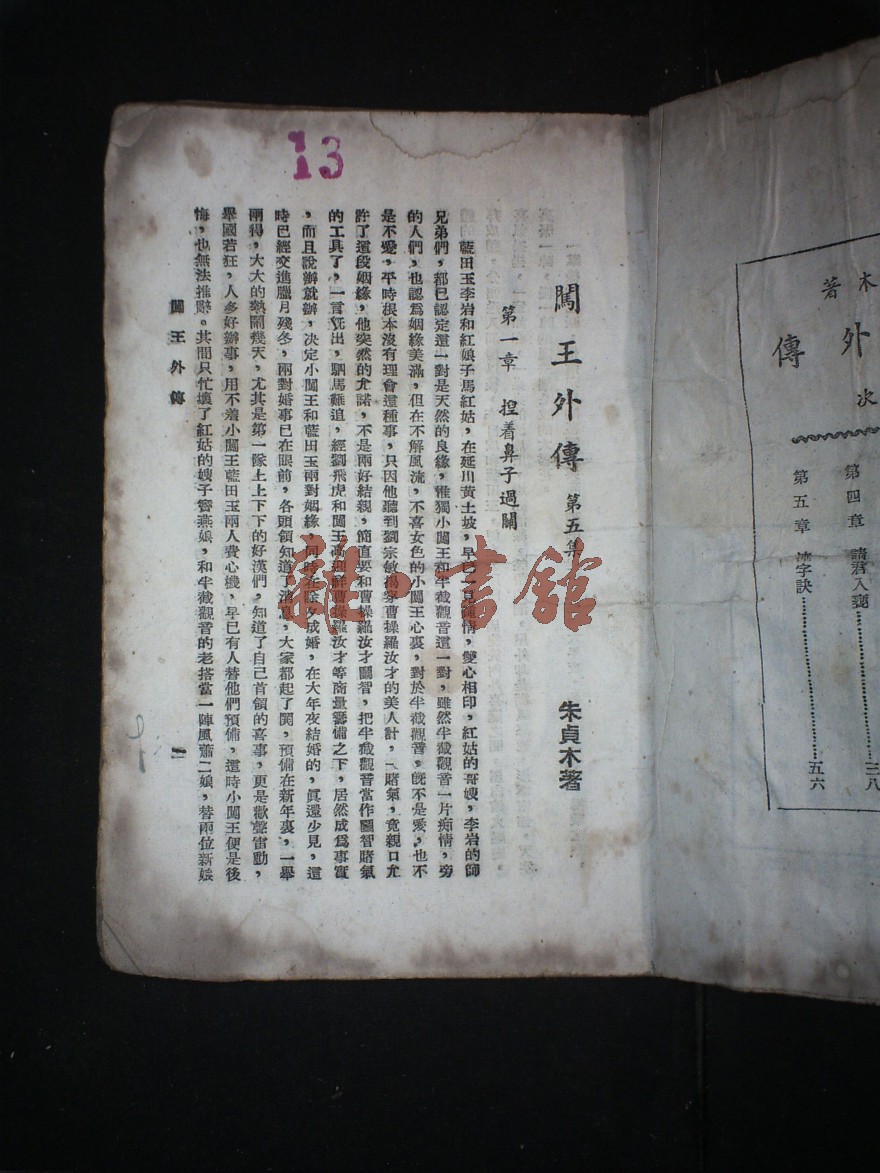 木
著
外
傳
次
第四章 諸君入甕……三八
第五章 沖字訣……五六
13
闖王外傳 第五集
朱貞木著
第一章 捏着鼻子過關
藍田玉李岩和紅娘子馬紅姑，在延川黄土坡，早已一見鍾情，雙心相印，紅姑的哥嫂，李岩的師
兄弟們，都已認定這一對是天然的良緣，惟獨小闖王和半截觀音這一對，雖然半截觀音一片痴情，旁
的人們，也認爲姻緣美滿，但在不解風流，不喜女色的小闖王心裏，對於半截觀音，旣不是愛，也不
是不愛，平時根本沒有理會這種事，只因他聽到劉宗敏揚家曹操羅汝才的美人計，一賭氣，竟親口允
許了這段姻緣，他突然的允諾，不是兩好結親，簡直要和曹操羅汝才鬭智，把半截觀音當作鬭智賭氣
的工具了，一言旣出，駟馬難追，經劉飛虎和闖王高迎祥曹操羅汝才等商量籌備之下，居然成爲事實
，而且說辦就辦，决定小闖王和藍田玉兩對姻緣，同時在除夕成婚，在大年夜結婚的，眞還少見，這
時已經交進臘月殘冬，兩對婚事已在眼前，各頭領知道了消息，大家都起了関，預備在新年裏，一舉
兩得，大大的熱鬧幾天，尤其是第一隊上上下下的好漢們，知道了自己首領的喜事，更是歡聲雷動，
舉國若狂，人多好辦事，用不着小闖王藍田玉兩人費心機，早已有人替他們預備，這時小闖王便是後
悔，也無法推辭。其間只忙壞了紅姑的嫂子響燕娘，和半截觀音的老搭當一陣風蕭二娘，替兩位新娘
闖王外傳
雜·書館